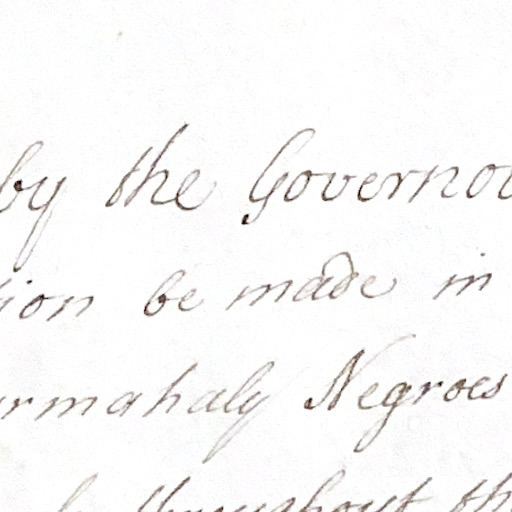 by the Governou
tion be made in
urmahaly Negroes
throughout the